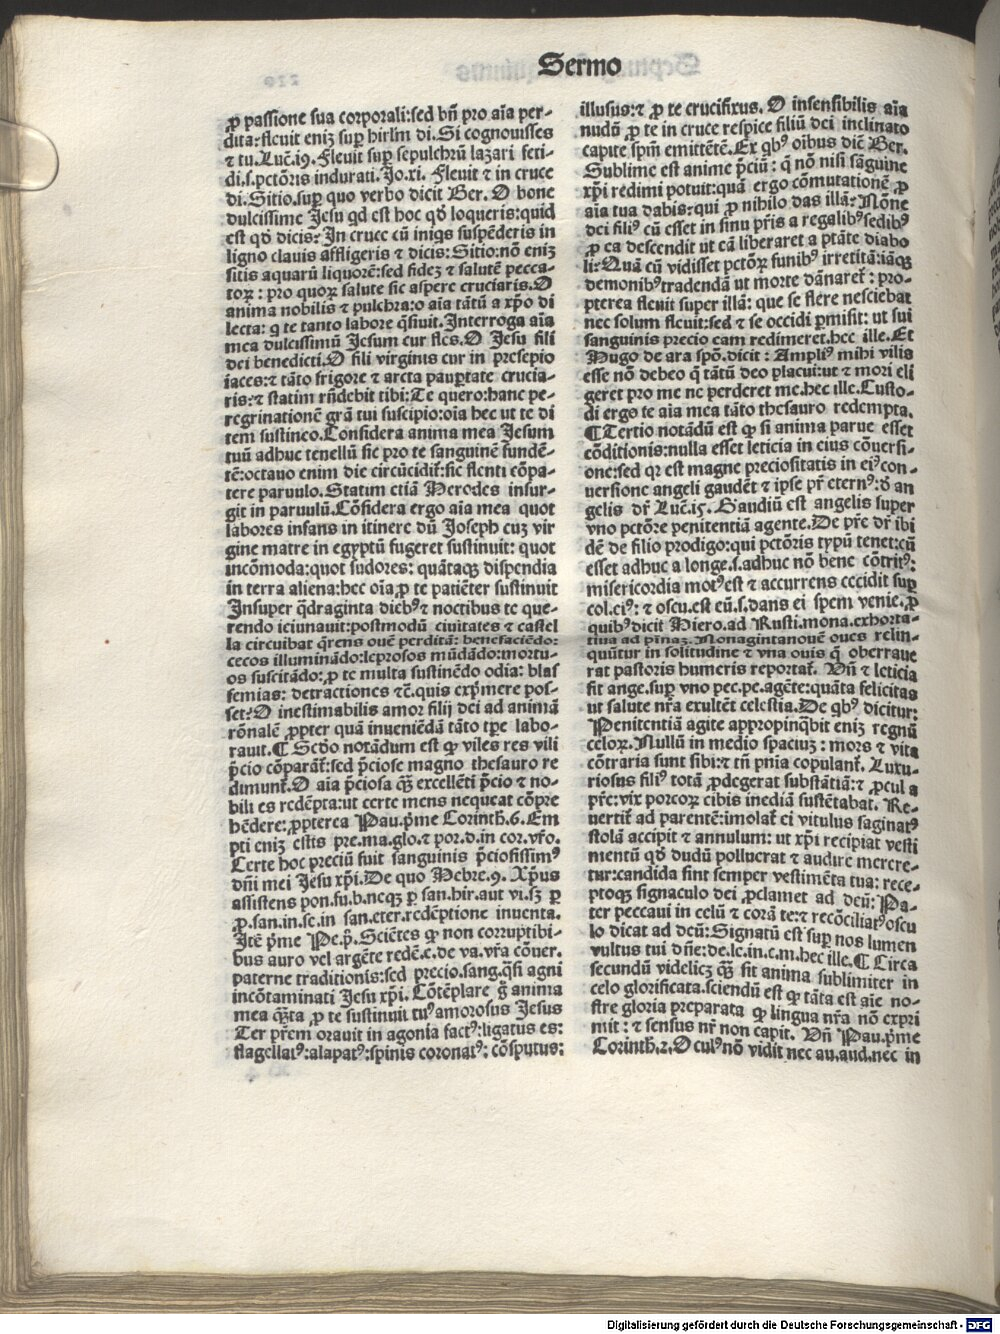 Sermo
ꝓ passione sua corporali:sed bñ pro aĩa per-
dita:fleuit eniʒ suꝑ hirlm̃ di. Si cognouisses
⁊ tu. Luc̃.19. Fleuit suꝑ sepulchrũ lazari feti-
di.s.pctõris indurati. Jo.xi. Fleuit ⁊ in cruce
di. Sitio.suꝑ quo verbo dicit Ber. O bone
dulcissime Jesu qd est hoc qđ loqueris:quid
est qđ dicis? In cruce cũ iniqs suspẽderis in
ligno clauis affligeris ⁊ dicis: Sitio:nõ eniʒ
sitis aquarũ liquorẽ:sed fideʒ ⁊ salutẽ pecca-
toꝝ : pro quoꝝ salute sic aspere cruciaris. O
anima nobilis ⁊ pulchra:o aĩa tãtũ a xp̃o di
lecta: ꝙ te tanto labore q̃siuit. Interroga aĩa
mea dulcissimũ Jesum cur fles. O Jesu fili
dei benedicti. O fili virginis cur in presepio
iaces:⁊ tãto frigore ⁊ arcta pauꝑtate crucia-
ris:⁊ statim rñdebit tibi: Te quero:hanc pe-
regrinationẽ gr̃a tui suscipio:oĩa hec ut te di
tem sustineo. Considera anima mea Jesum
tuũ adhuc tenellũ sic pro te sanguinẽ fundẽ-
tẽ:octauo enim die circũcidit̃:sic flenti cõpa-
tere paruulo. Statim etiã Herodes insur-
git in paruulũ. Cõsidera ergo aĩa mea quot
labores infans in itinere dũ Joseph cuʒ vir
gine matre in egyptũ fugeret sustinuit: quot
incõmoda:quot sudores: quãtaqʒ dispendia
in terra aliena:hec oĩa ꝓ te patiẽter sustinuit
Insuper q̃draginta diebꝰ ⁊ noctibus te que-
rendo ieiunauit:postmodũ ciuitates ⁊ castel
la circuibat q̃rens ouẽ perditã: benefaciẽdo:
cecos illuminãdo:leprosos mũdãdo:mortu-
os suscitãdo:ꝓ te multa sustinẽdo odia: blas
femias: detractiones ⁊c̃.quis exp̃mere pos-
set? O inestimabilis amor filij dei ad animã
rõnalẽ ꝓpter quã inueniẽdã tãto tp̃e labo-
rauit. ¶ Scd̃o notãdum est ꝙ viles res vili
p̃cio cõparãt̃:sed p̃ciose magno thesauro re
dimunt̃. O aĩa p̃ciosa qʒ̃ excellẽti p̃cio ⁊ no-
bili es redẽpta:ut certe mens nequeat cõpre
hẽdere: ꝓpterea Pau.p̃me Corinth.6. Em
pti eniʒ estis pre.ma.glo.⁊ por.d.in cor.vr̃o.
Certe hoc preciũ fuit sanguinis p̃ciosissimꝰ
dñi mei Jesu xp̃i. De quo Hebre.9. Xp̃us
assistens pon.fu.b.neqʒ ꝑ san.hir.aut vi.sʒ ꝑ
ꝓ.san.in.se.in san.eter.redẽptione inuenta.
Itẽ p̃me Pe.p̃. Sciẽtes ꝙ non corruptibi-
bus auro vel argẽte redẽ.e.de va.vr̃a cõuer.
paterne traditionis:sed precio.sang.q̃si agni
incõtaminati Jesu xp̃i. Cõtẽplare g̃ anima
mea qʒ̃ta ꝓ te sustinuit tuꝰ amorosus Jesus
Ter pr̃em orauit in agonia factꝰ:ligatus es:
flagellatꝰ:alapatꝰ:spinis coronatꝰ: cõsputus:
illusus:⁊ ꝓ te crucifixus. O insensibilis aĩa
nudũ ꝓ te in cruce respice filiũ dei inclinato
capite spm̃ emittẽtẽ. Ex qbꝰ oĩbus diẽ Ber.
Sublime est anime p̃ciũ: q̃ nõ nisi sãguine
xp̃i redimi potuit:quã ergo cõmutationẽ ꝓ
aĩa tua dabis:qui ꝓ nihilo das illã? Nõne
dei filiꝰ cũ esset in sinu pr̃is a regalibꝰ sedibꝰ
ꝓ ea descendit ut eã liberaret a ptãte diabo
li: Quã cũ vidisset pctõꝝ funibꝰ irretitã:iãqʒ
demonibꝰ tradendã ut morte dãnaret̃ : pro-
pterea fleuit super illã: que se flere nesciebat
nec solum fleuit:sed ⁊ se occidi ꝑmisit: ut sui
sanguinis precio eam redimeret.hec ille. Et
Hugo de ara spõ.dicit : Ampliꝰ mihi vilis
esse nõ debeo q̃ tãtũ deo placui:ut ⁊ mori eli
geret pro me ne perderet me.hec ille. Custo-
di ergo te aĩa mea tãto thesauro redempta.
¶ Tertio notãdũ est ꝙ si anima parue esset
cõditionis:nulla esset leticia in eius cõuersi-
one:sed qr est magne preciositatis in eiꝰ con-
uersione angeli gaudẽt ⁊ ipse pr̃ eternꝰ:đ an
gelis dr̃ Luc̃.15. Gaudiũ est angelis super
vno pctõ:e penitentiã agente. De pr̃e dr̃ ibi
dẽ de filio prodigo:qui pctõris typũ tenet:cũ
esset adhuc a longe.s.adhuc nõ bene cõtritꝰ:
misericordia motꝰ est ⁊ accurrens cecidit suꝑ
col.eiꝰ: ⁊ oscu.est eũ.s.dans ei spem venie.ꝓ
quibꝰ dicit Hiero.ad Rusti.mona.exhorta-
tiua ad pĩnaʒ. Nonagintanouẽ oues relin-
quũtur in solitudine ⁊ vna ouis q̃ oberraue
rat pastoris humeris reportat̃. Vñ ⁊ leticia
fit ange.suꝑ vno pec.pe.agẽte:quãta felicitas
ut salute nr̃a exultẽt celestia. De qbꝰ dicitur:
Penitentiã agite appropinq̃bit eniʒ regnũ
celoꝝ. Nullũ in medio spaciuʒ : mors ⁊ vita
cõtraria sunt sibi:⁊ tñ pñia copulant̃. Luxu-
riosus filiꝰ totã ꝓdegerat substãtiã:⁊ ꝓcul a
pr̃e:vix porcoꝝ cibis inediã sustẽtabat. Re-
uertit̃ ad parentẽ:imolat̃ ei vitulus saginatꝰ
stolã accipit ⁊ annulum: ut xp̃i recipiat vesti
mentũ qđ dudũ polluerat ⁊ audire merere-
tur:candida sint semper vestimẽta tua: rece-
ptoqʒ signaculo dei ꝓclamet ad deũ: Pa-
ter peccaui in celũ ⁊ corã te:⁊ recõciliatꝰ oscu
lo dicat ad deũ: Signatũ est suꝑ nos lumen
vultus tui dñe:de.le.in c.m.hec ille. ¶ Circa
secundũ videlicʒ qʒ̃ sit anima sublimiter in
celo glorificata.sciendũ est ꝙ tãta est aĩe no-
stre gloria preparata ꝙ lingua nr̃a nõ expri
mit : ⁊ sensus nr̃ non capit. Vñ Pau.p̃me
Corinth.2. O culꝰ nõ vidit nec au.aud.nec in
Digitalisierung gefördert durch die Deutsche Forschungsgemeinschaft - DFG